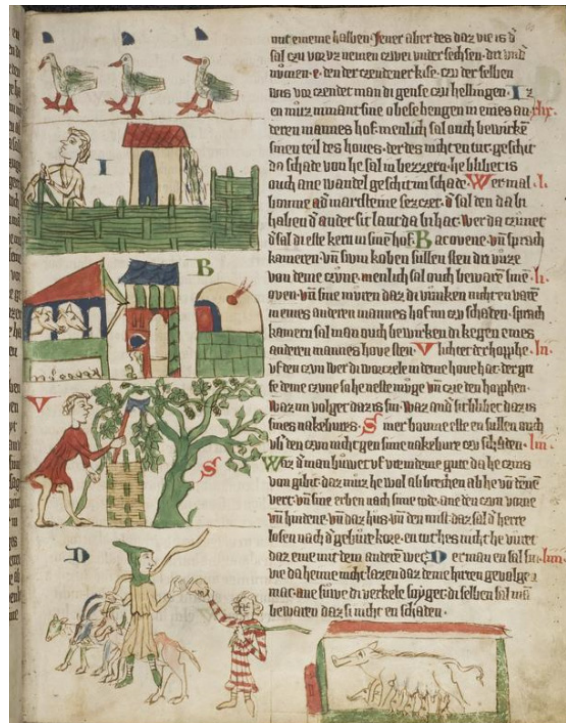 mit eineme halben. Jener aber des daz vie is d̓
sal czu voꝛ vz nemen czwei vnder sechsen. dꝛi vnd̓
nvnen. e. den der czendener kise. czu der selben
wis voꝛ czendet man di gense czu hellingen. Iz
en muz nimant sine obese hengen in eines an
deren mannes hof. menlich sal ouch bewirkē
sinen teil des houes. der des nicht en tut. geschit
da schade von he sal in bezzern. he blibet is
ouch ane wandel geschit im schade. Wer mal
boume ad̓ marsteine seczet. d̓ sal den da bi
haben d̓ ander sit lant da bi hat. Wer da czunet
d̓ sal di este keren in sinē hof. Bacovene. vn̄ sprach
kameren. vn̄ swin koben sullen sten dꝛi vuze
von deme czvne. menlich sal ouch bewarē sinē
oven. vn̄ sine mvren daz di vunken nicht en varē
in eines anderen mannes hof im czu schaden. sprach
kamern sal man ouch bewirken di kegen eines
anderen mannes hove sten. Vlichtet der hopphe
vf den czvn wer di wurczele in deme hove hat. der gri
fe deme czvne so he neste mvge vn̄ czie den hopphen.
Waz im volget daz is sin. Waz andsit blibet daz is
sines nakebures. Siner boume este en sullen ouch
vb̓ den czvn nicht gen sime nakebure czu schaden.
Waz d̓ man buwet vf vremdeme gute da he czins
von gibit. daz muz he wol ab brechen ab he vō dēnē
vert. vn̄ sine erben nach sime tode. ane den czvn voꝛne
vn̄ hindene. vn̄ daz hus. vn̄ den mist. daz sal d̓ herre
losen nach d̓ gebure koꝛe. en tut hes nicht he vuret
daz eine mit dem anderē wec. Der man en sal sin
vie da heime nicht lazen daz deme hirten gevolgē
mac. ane suwe di verkele soyget. di selben sal mā
bewaren daz si nicht en schaden.
I
B
V
S
D